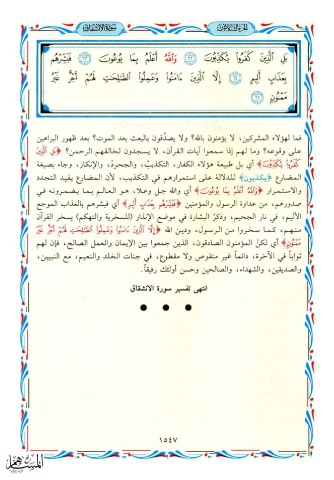 سورة الانشقاق
الجزء الثلاثون
بَلِ ٱلَّذِينَ كَفَرُوا۟ يُكَذِّبُونَ ٢٢ وَٱللَّهُ أَعْلَمُ بِمَا يُوعُونَ ٢٣ فَبَشِّرْهُم
بِعَذَابٍ أَلِيمٍ ٢٤ إِلَّا ٱلَّذِينَ ءَامَنُوا۟ وَعَمِلُوا۟ ٱلصَّـٰلِحَـٰتِ لَهُمْ أَجْرٌ غَيْرُ
مَمْنُونٍۭ ٢٥
فما لهؤلاء المشركين، لا يؤمنون بالله؟ ولا يصدِّقون بالبعث بعد الموت؟ بعد ظهور البراهين
على وقوعه؟ وما لهم إذا سمعوا آيات القرآن، لا يسجدون لخالقهم الرحمن؟ ﴿بَلِ ٱلَّذِينَ
كَفَرُوا۟ يُكَذِّبُونَ﴾ أي بل طبيعة هؤلاء الكفار، التكذيبُ، والجحودُ، والإنكار، وجاء بصيغة
المضارع ﴿يكذبون﴾ للدلالة على استمرارهم في التكذيب، لأن المضارع يفيد التجدد
والاستمرار ﴿وَٱللَّهُ أَعْلَمُ بِمَا يُوعُونَ﴾ أي والله جل وعلا، هو العالم بما يضمرونه في
صدورهم، من عداوة الرسول والمؤمنين ﴿فَبَشِّرْهُم بِعَذَابٍ أَلِيمٍ﴾ أي فبشرهم بالعذاب الموجع
الأليم، في نار الجحيم، وذكرُ البشارة في موضع الإنذار (للسخرية والتهكم) يسخر القرآن
منهم، كما سخروا من الرسول، ودين الله ﴿إِلَّا ٱلَّذِينَ ءَامَنُوا۟ وَعَمِلُوا۟ ٱلصَّـٰلِحَـٰتِ لَهُمْ أَجْرٌ غَيْرُ
مَمْنُونٍۭ﴾ أي لكنَّ المؤمنون الصادقون، الذين جمعوا بين الإيمان والعمل الصالح، فإن لهم
ثواباً في الآخرة، دائماً غير منقوص ولا مقطوع، في جنات الخلد والنعيم، مع النبيين،
والصديقين، والشهداء، والصالحين وحسن أولئك رفيقاً.
انتهى تفسير سورة الانشقاق
١٥٤٧